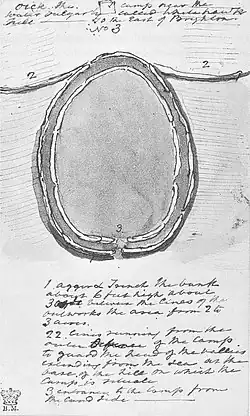 Over the [] Camp near the
called White hawk
hill to the East of Brighton
No 3
2
2
3
1. agger & Trench the bank
about 6 feet high about
3 between the lines of the
outworks the area from 2 to
3 acres.
2 2. lines running from the
outer Defence of the Camp
to guard the head of the vallies
extending from the Sea at the
base of the hill on which the
Camp is situate
3 entrance to the Camp from
the Land side
B.M.